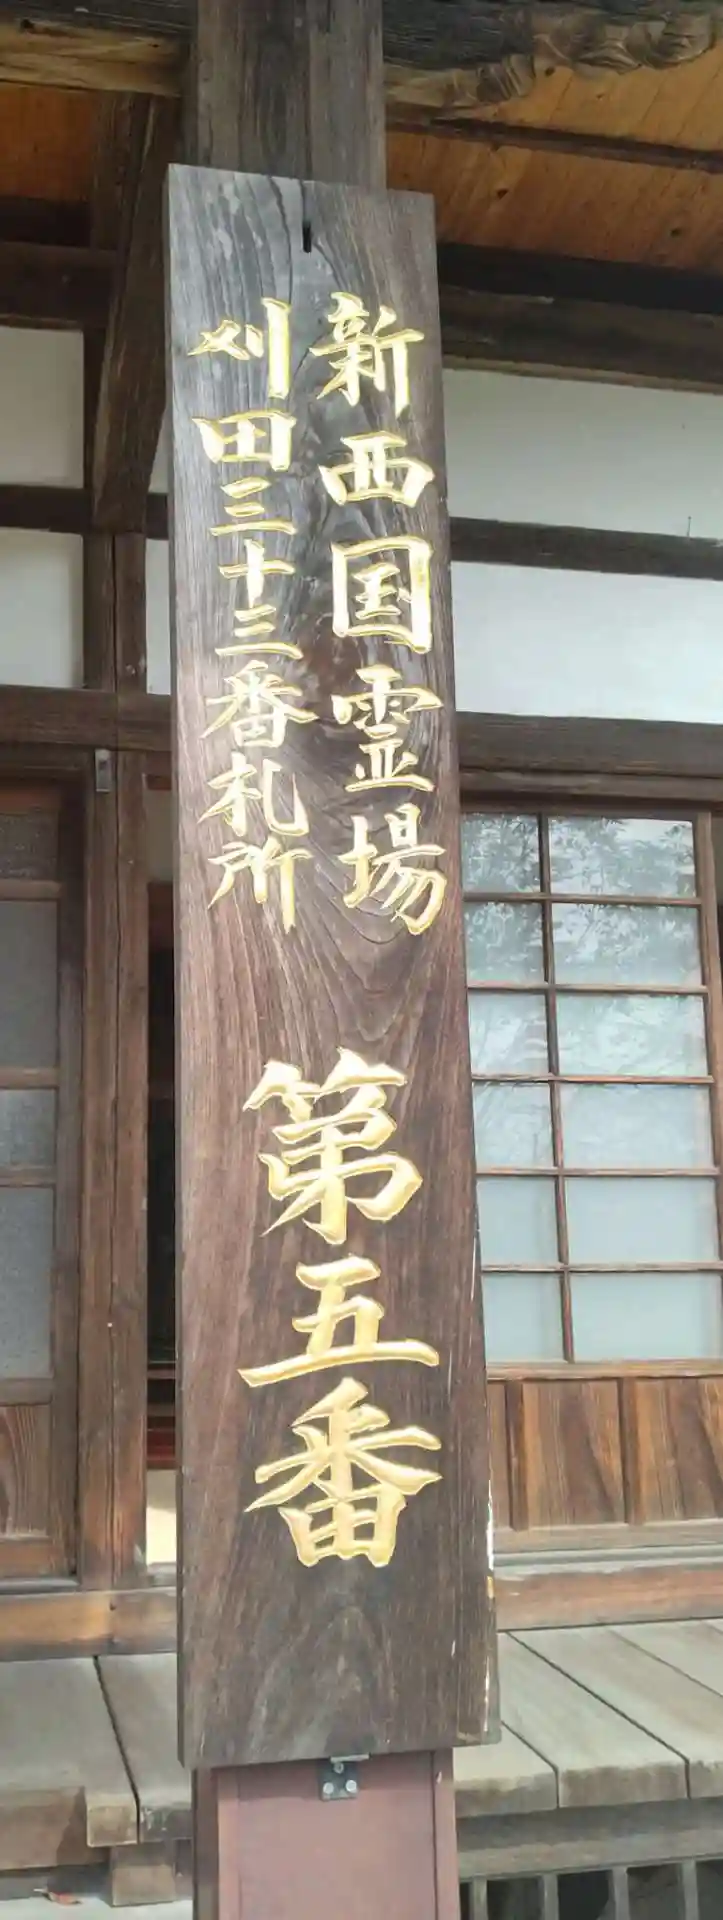 新西国霊場
刈田三十三番札所
第五番